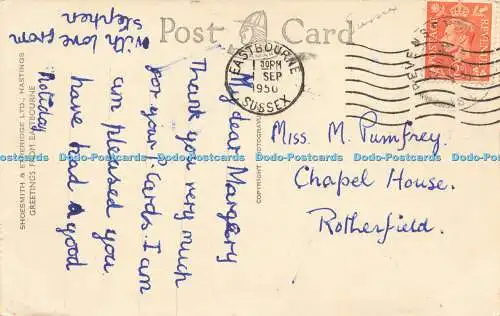 Post Card
Sussex
EASTBOURNE
SEP
1950
SUSSEX
POSTAGE
REVENUE
My dear Margery
Thank you very much
for your P. Cards. I am
am pleased you
have had a good
Holiday
with love from
Stephen
Miss. M. Pumfrey.
Chapel House.
Rotherfield.
SHOESMITH & ETHERIDGE LTD., HASTINGS
GREETINGS FROM EASTBOURNE
COPYRIGHT
Dodo-Postcards Dodo-Postcards Dodo-Postcards Dodo-Postcards Dodo-Postcards